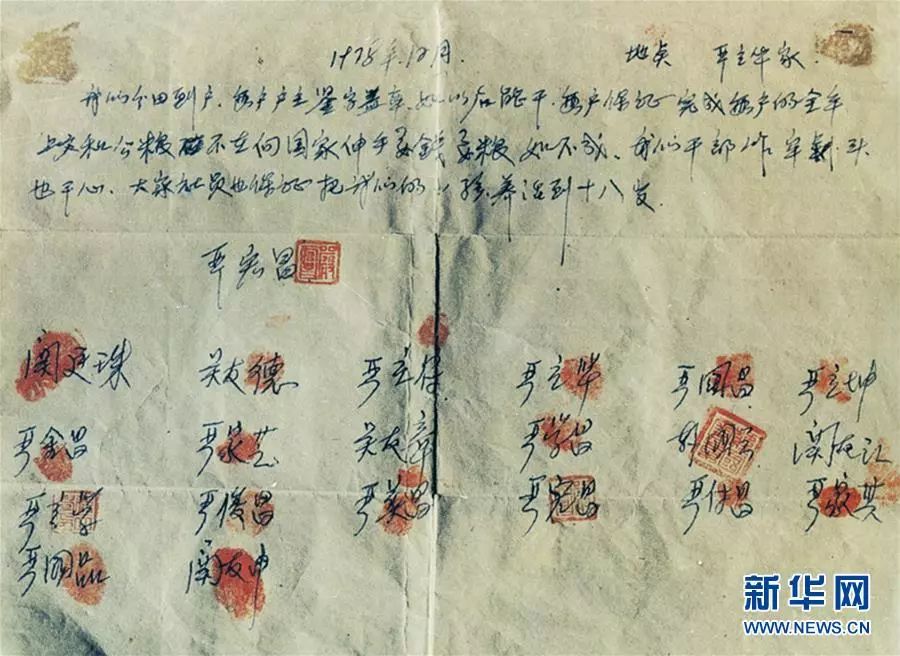 1978年12月 地点 严立华家
我们分田到户,每户户主鉴字盖章,如以后能干,每户保证完成每户的全年
上交和公粮,不在向国家伸手要钱要粮,如不成,我们干部作牢刹头
也干心,大家社员也保证把我们的小孩养活到十八岁。
严宏昌
关廷珠 关友德 严立符 严立华 严国昌 严立坤
严金昌 严家芝 关友章 严学昌 韩国云 关友江
严立学 严俊昌 严美昌 严宏昌 严付昌 严家其
严国品 关友申
新华网
WWW.NEWS.CN